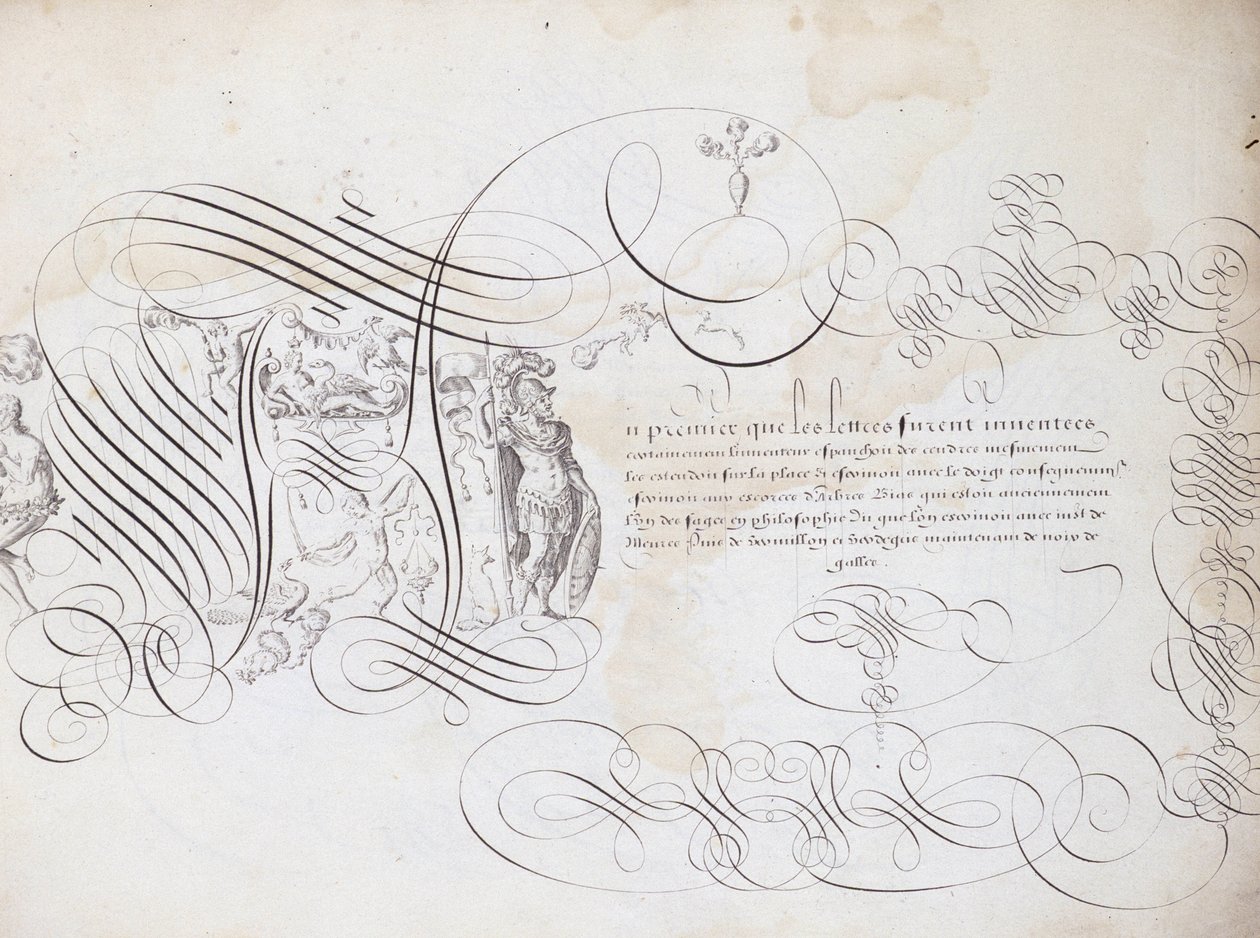 Au premier que les lettres furent inuentees
certainement linuenteur espanchoit des cendres mesmement
les estendoit sur la place et escriuoit auec le doigt consequemmt.
escriuoit aux escorces d'Arbres Bias qui estoit anciennement
l'vn des sages en philosophie dit que l'on escriuoit auec iust de
Meures Puis de Vermillon et Verdegris maintenant de noix de
galles.